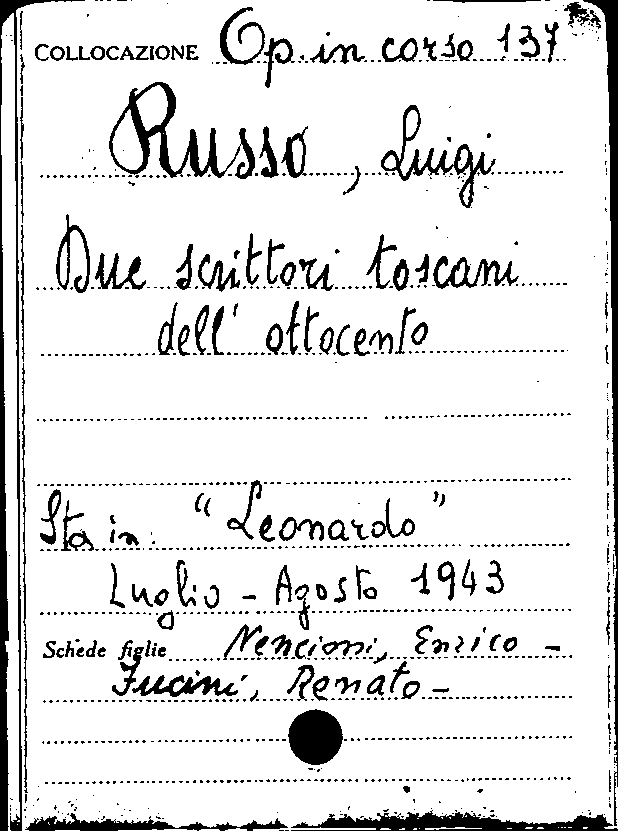 COLLOCAZIONE Op. in corso 137
Russo, Luigi
Due scrittori toscani
dell' ottocento
Sta in: "Leonardo"
Luglio - Agosto 1943
Schede figlie Nencioni, Enrico -
Fucini, Renato -